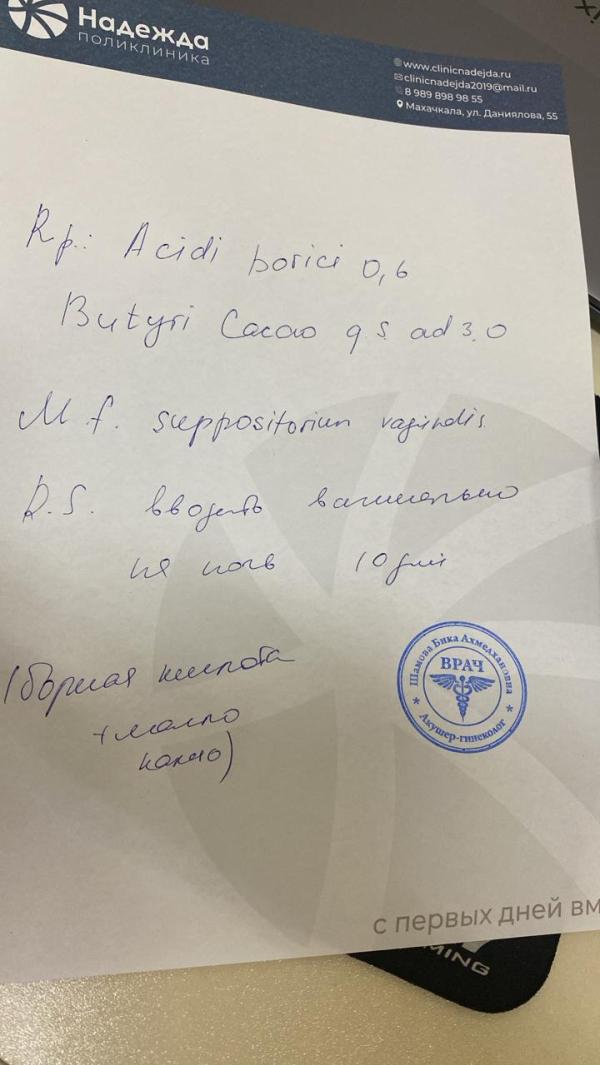 Надежда
ПОЛИКЛИНИКА
www.clinicnadejda.ru
clinicnadejda2019@mail.ru
8 989 898 98 55
Махачкала, ул. Даниялова, 55
Rp.: Acidi borici 0,6
Butyri Cacao q.s. ad 3.0
M. f. suppositorium vaginalis.
D.S. вводить вагинально
на ночь 10 дней
(борная кислота
+ масло
какао)
Шамова Бика Ахмедхановна
ВРАЧ
Акушер-гинеколог
с первых дней вм
MING